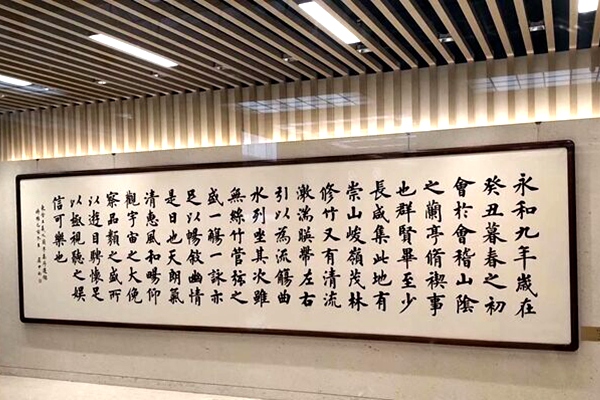 永和九年歲在
癸丑暮春之初
會於會稽山陰
之蘭亭脩禊事
也群賢畢至少
長咸集此地有
崇山峻嶺茂林
修竹又有清流
激湍映帶左右
引以為流觴曲
水列坐其次雖
無絲竹管弦之
盛一觴一詠亦
足以暢敘幽情
是日也天朗氣
清惠風和暢仰
觀宇宙之大俛
察品類之盛所
以遊目騁懷足
以極視聽之娛
信可樂也